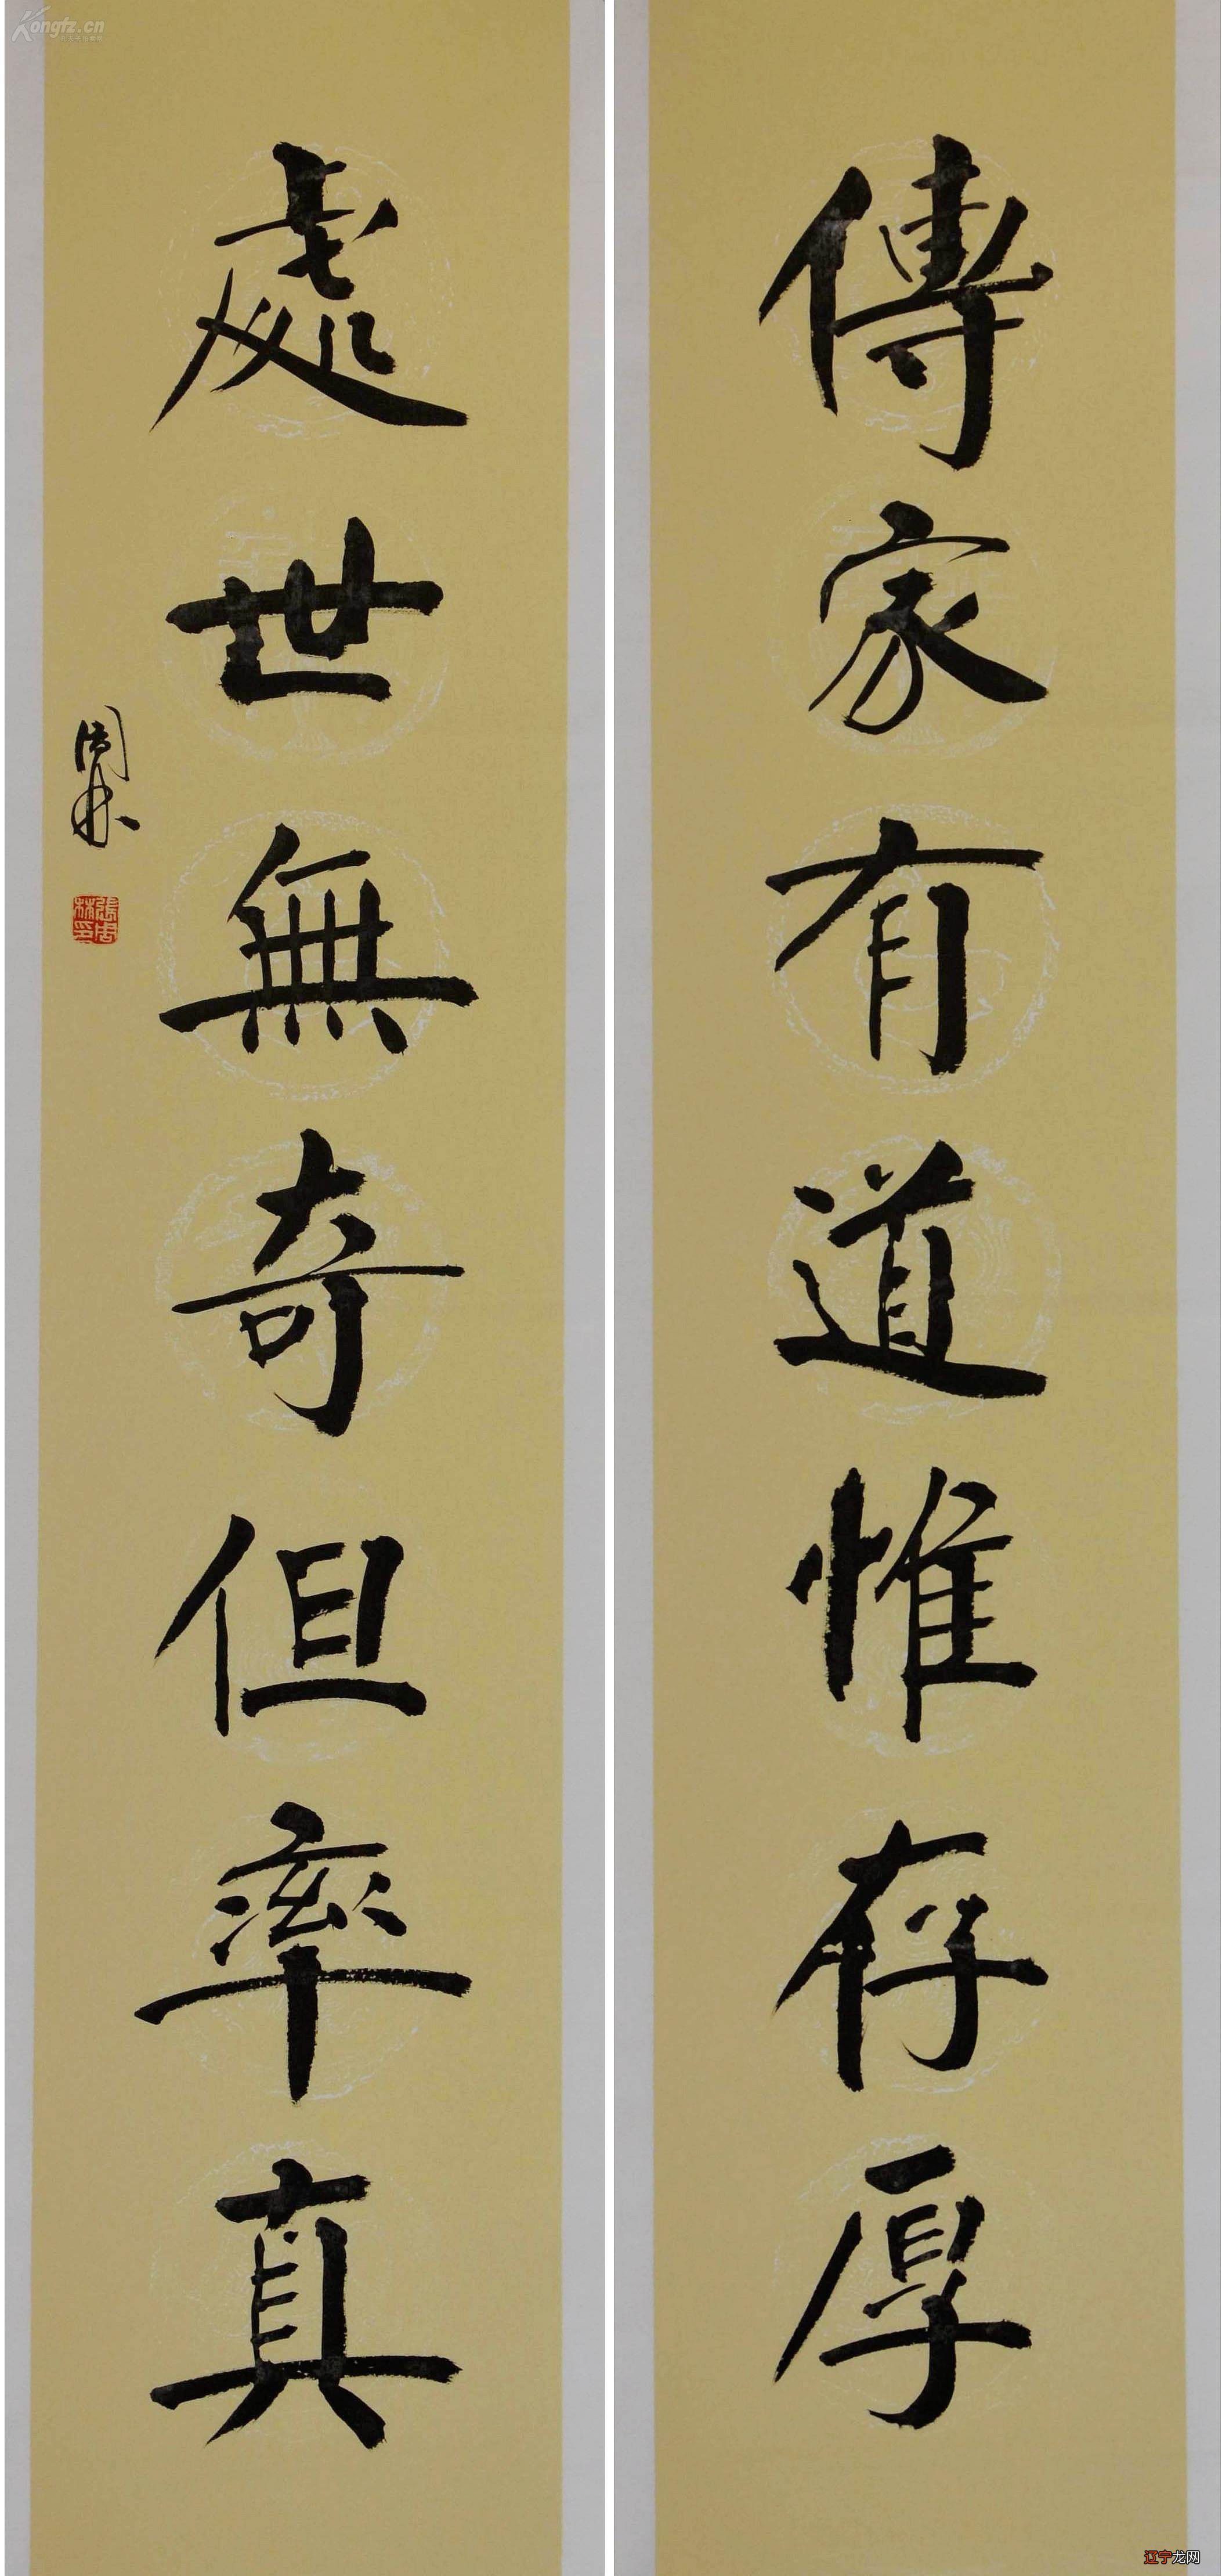 傳家有道惟存厚
處世無奇但率真
周林
張周林印
Kongfz.cn
辽宁龙网